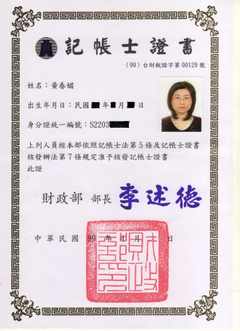 記帳士證書
(99)台財稅證字第00129號
姓名：黃春媚
出生年月日：民國 年 月 日
身分證統一編號：S2203
上列人員經本部依照記帳士法第5條及記帳士證書
核發辦法第7條規定准予核發記帳士證書
此證
財政部 部長 李述德
中華民國 99 年 月 日